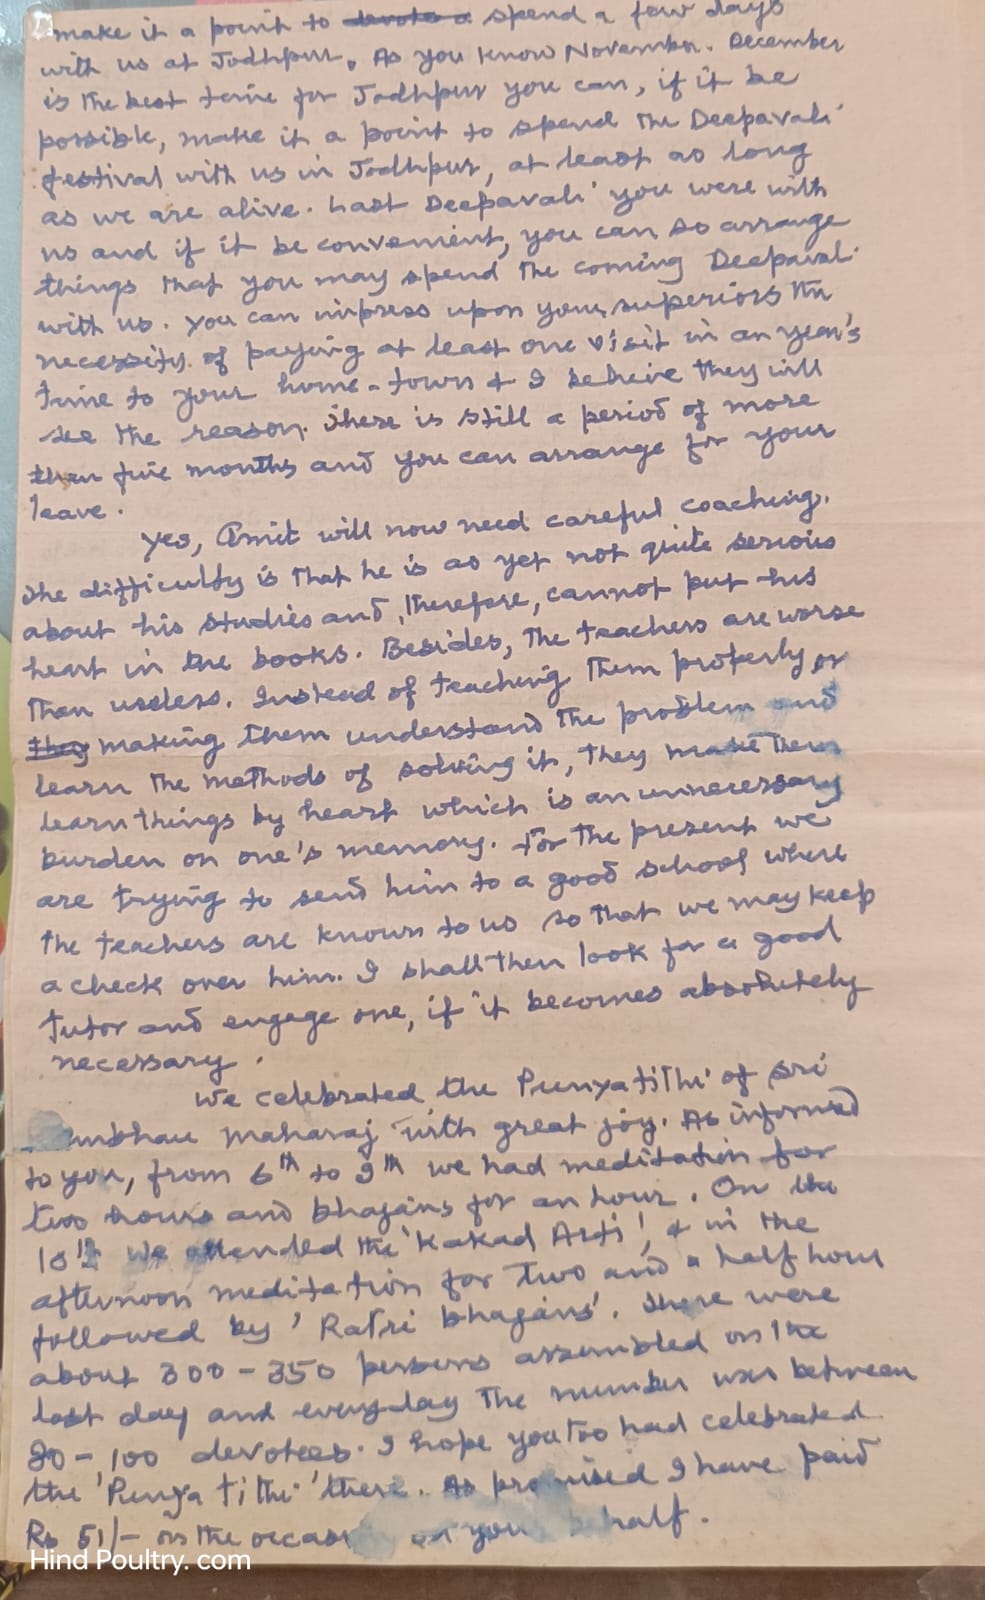 make it a point to devote a spend a few days
with us at Jodhpur. As you know November. December
is the best time for Jodhpur you can, if it be
possible, make it a point to spend the Deepavali
festival with us in Jodhpur, at least as long
as we are alive. Last Deepavali you were with
us and if it be convenient, you can so arrange
things that you may spend the coming Deepavali
with us. You can impress upon your superiors the
necessity of paying at least one visit in an year's
time to your home-town & I believe they will
see the reason. There is still a period of more
than five months and you can arrange for your
leave.
Yes, Amit will now need careful coaching.
The difficulty is that he is as yet not quite serious
about his studies and, therefore, cannot put his
heart in the books. Besides, the teachers are worse
than useless. Instead of teaching them properly or
they making them understand the problem and
learn the methods of solving it, they make them
learn things by heart which is an unnecessary
burden on one's memory. For the present we
are trying to send him to a good school where
the teachers are known to us so that we may keep
a check over him. I shall then look for a good
tutor and engage one, if it becomes absolutely
necessary.
We celebrated the Punyatithi of Sri
Maharaj with great joy. As informed
to you, from 6th to 9th we had meditation for
two hours and bhajans for an hour. On the
10th we attended the 'Kakad Arti', & in the
afternoon meditation for two and a half hour
followed by 'Ratri bhajans'. There were
about 300-350 persons assembled on the
last day and everyday the number was between
- 100 devotees. I hope you too had celebrated
the 'Punya tithi' there. As promised I have paid
Rs 51/- on the your behalf.
Hind Poultry. com